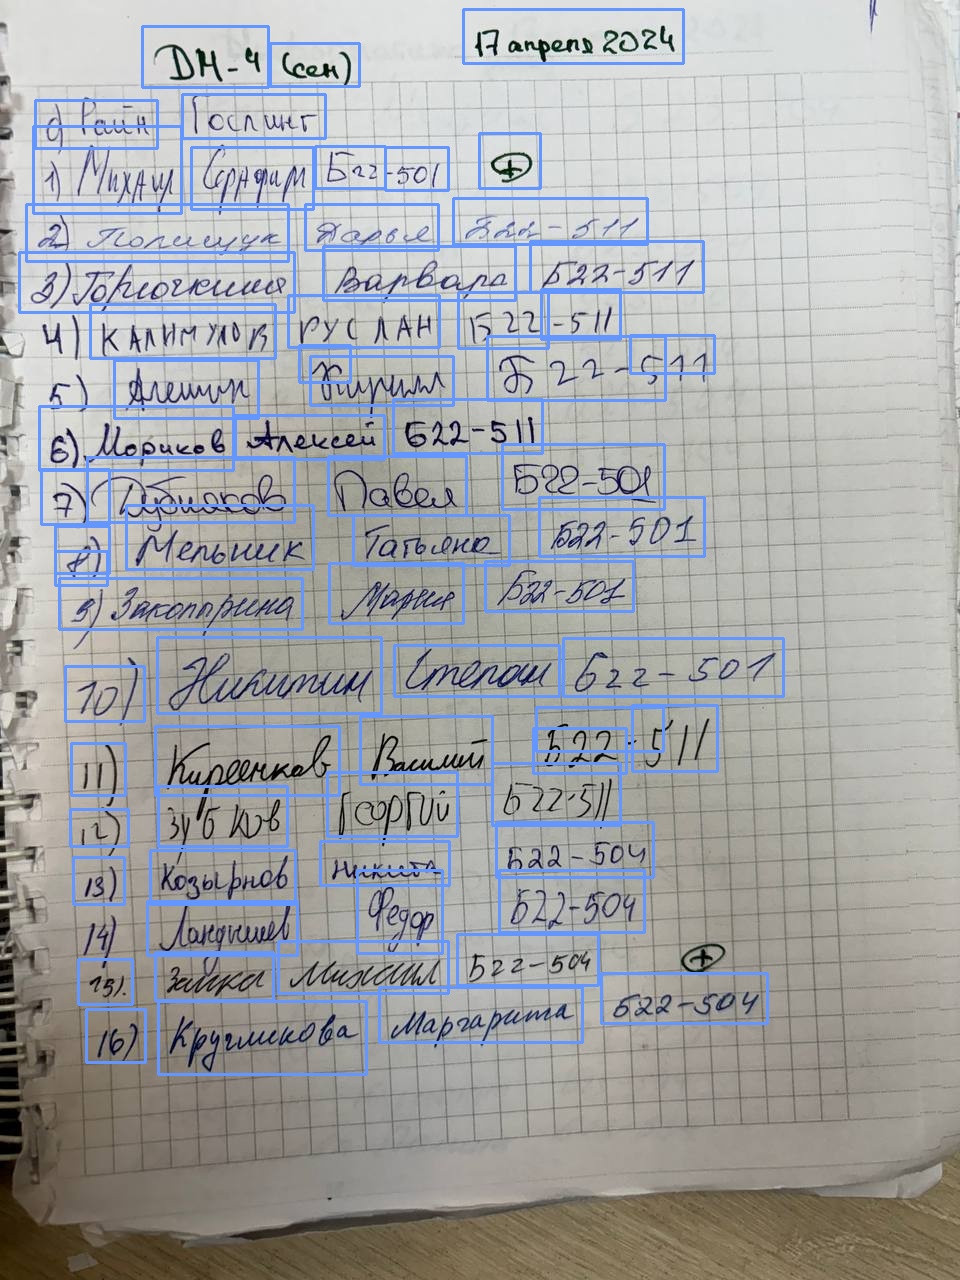 ДМ-4 (сем) 17 апреля 2024
0) Райн Гослинг
1) Михаил Серафим Б22-501 +
2) Полищук Дарья Б22-511
3) Горючкина Варвара Б22-511
4) КАЛИМУЛОВ РУСЛАН Б22-511
5) Алешин Кирилл Б22-511
6) Мориков Алексей Б22-511
7) Павел Б22-501
8) Мельник Татьяна Б22-501
9) Закопырина Мария Б22-501
10) Никитин Степан Б22-501
11) Киреенков Василий Б22-511
12) Зубков Георгий Б22-511
13) Козырнов Никита Б22-504
14) Ландышев Федор Б22-504
15). Заика Михаил Б22-504 +
16) Кругликова Маргарита Б22-504